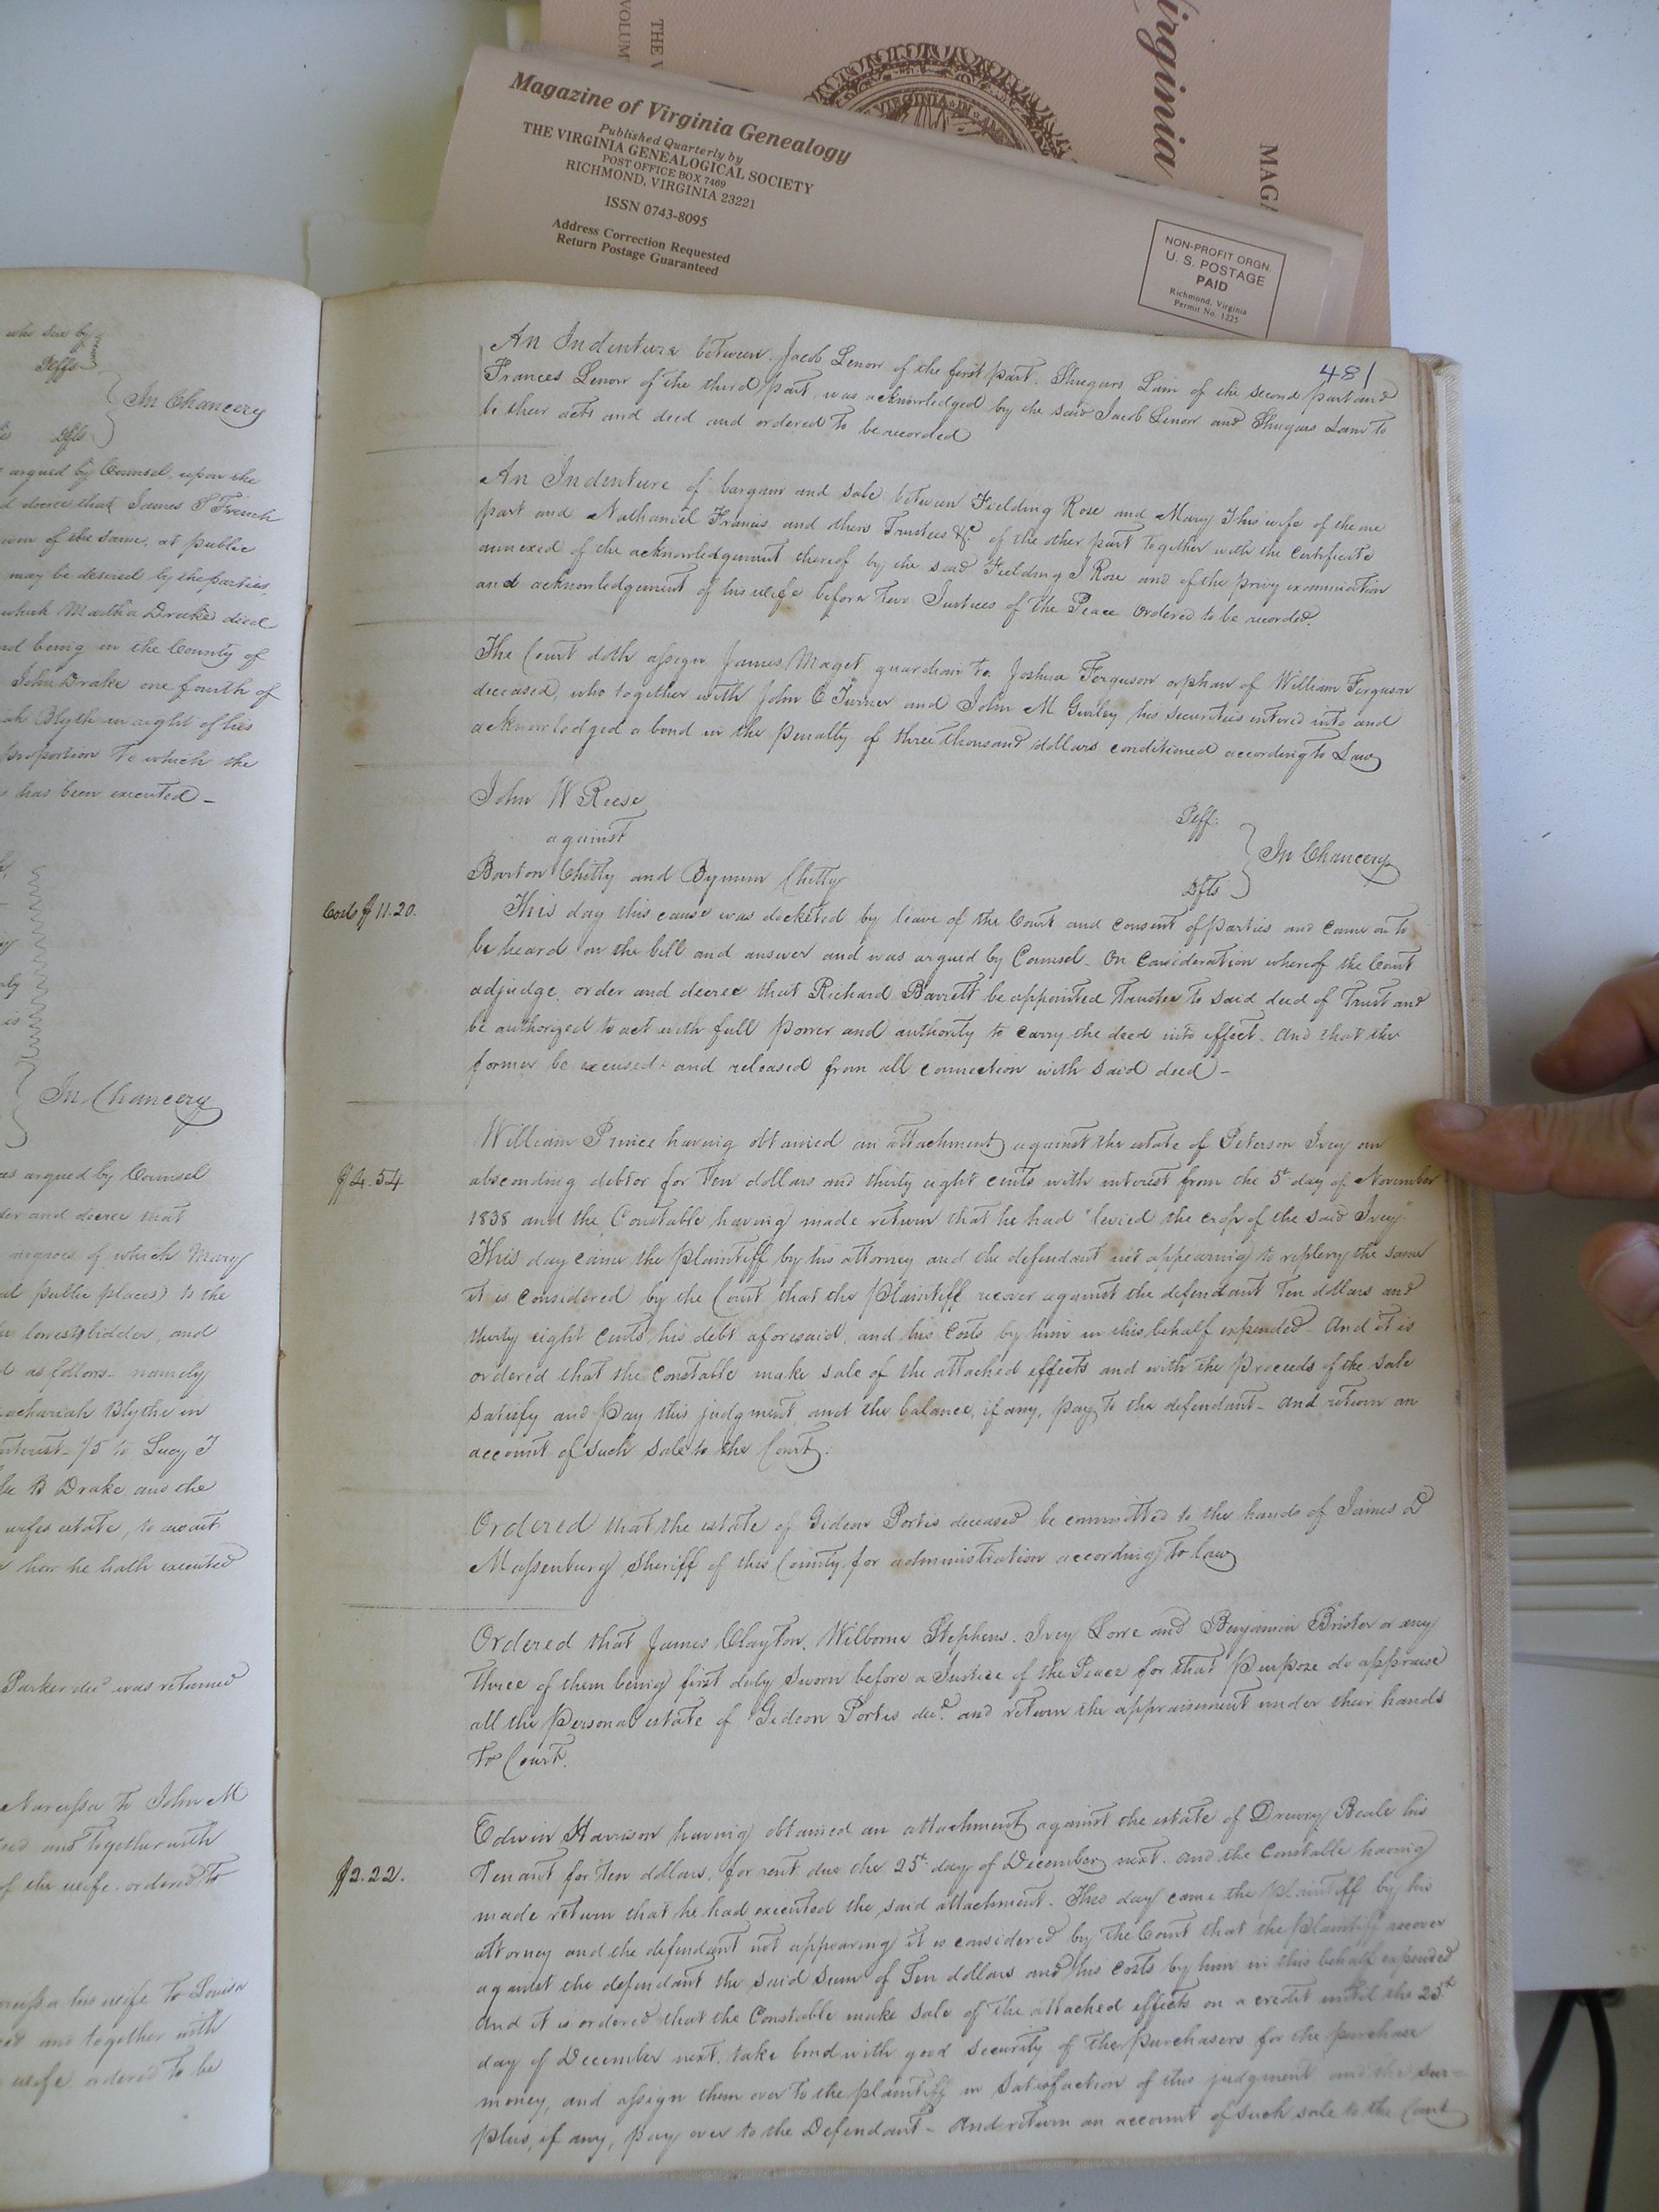 irginia
MAGA
THE V
VOLUM
VIRGINIA IN AM
Magazine of Virginia Genealogy
Published Quarterly by
THE VIRGINIA GENEALOGICAL SOCIETY
POST OFFICE BOX 7469
RICHMOND, VIRGINIA 23221
ISSN 0743-8095
Address Correction Requested
Return Postage Guaranteed
NON-PROFIT ORGN.
U. S. POSTAGE
PAID
Richmond, Virginia
Permit No. 1225
who sue by
Pltffs
In Chancery
Dfts
argued by Counsel upon the
d decree that James S French
of the same, at public
may be desired by the parties
which Martha Drake died
nd being in the County of
John Drake one fourth of
ah Blyth in right of his
proportion to which the
s has been executed -
In Chancery
as argued by Counsel
der and decree that
negroes of which Mary
public places) to the
lowest bidder, and
d as follows - namely
achariah Blythe in
nterest - 1/5 to Lucy T
B Drake and the
wifes estate, to
how he hath executed
Parker decd was returned
Narcissa to John M
and together with
of the wife ordered to
arcissa his wife to Louisa
and together with
wife ordered to be
481
An Indenture between Jacob Lenow of the first part. Shugars Lain of the second part and
Frances Lenow of the third part, was acknowledged by the said Jacob Lenow and Shugars Lain to
be their acts and deed and ordered to be recorded
An Indenture of bargain and sale between Fielding Rose and Mary J his wife of the one
part and Nathaniel Francis and others Trustees &c of the other part together with the certificate
annexed of the acknowledgement thereof by the said Fielding J Rose and of the privy examination
and acknowledgement of his wife before two Justices of the Peace ordered to be recorded.
The Court doth assign James Maget guardian to Joshua Ferguson orphan of William Ferguson
deceased, who together with John C Turner and John M Gurley his securities entered into and
acknowledged a bond in the penalty of three thousand dollars conditioned according to Law
John W Reese
Pltff:
against
In Chancery
Barton Chitty and Bynum Chitty
Dfts
Costs $11.20.
This day this cause was docketed by leave of the Court and consent of parties and came on to
be heard on the bill and answer and was argued by Counsel - On consideration whereof the Court
adjudge, order and decree that Richard Barrett be appointed Trustee to said deed of Trust and
be authorized to act with full power and authority to carry the deed into effect. And that the
former be excused and released from all connection with said deed -
William Prince having obtained an attachment against the estate of Peterson Ivey an
$4.54
absconding debtor for Ten dollars and thirty eight cents with interest from the 5th day of November
1838 and the Constable having made return that he had "levied the crop of the said Ivey"
This day came the plaintiff by his attorney and the defendant not appearing to replevy the same
it is considered by the Court that the Plaintiff recover against the defendant Ten dollars and
thirty eight cents, his debt aforesaid, and his costs by him in this behalf expended. And it is
ordered that the Constable make sale of the attached effects and with the proceeds of the sale
satisfy and pay this judgment and the balance, if any, pay to the defendant - and return an
account of such sale to the Court.
Ordered that the estate of Gideon Portis deceased be committed to the hands of James D
Massenburg Sheriff of this County for administration according to law
Ordered that James Clayton, Wilborne Stephens, Ivey Lowe and Benjamin Brister or any
three of them being first duly sworn before a Justice of the Peace for that purpose do appraise
all the personal estate of Gideon Portis decd. and return the appraisement under their hands
To Court.
Edwin Harrison having obtained an attachment against the estate of Drewry Beale his
$2.22.
Tenant for Ten dollars, for rent due the 25th day of December next. and the Constable having
made return that he had executed the said attachment. This day came the plaintiff by his
attorney and the defendant not appearing it is considered by the Court that the plaintiff recover
against the defendant the said sum of Ten dollars and his costs by him in this behalf expended
And it is ordered that the Constable make sale of the attached effects on a credit until the 25th
day of December next, take bond with good security of the purchasers for the purchase
money, and assign them over to the plaintiff in satisfaction of this judgment and the sur-
plus, if any, pay over to the Defendant - And return an account of such sale to the Court